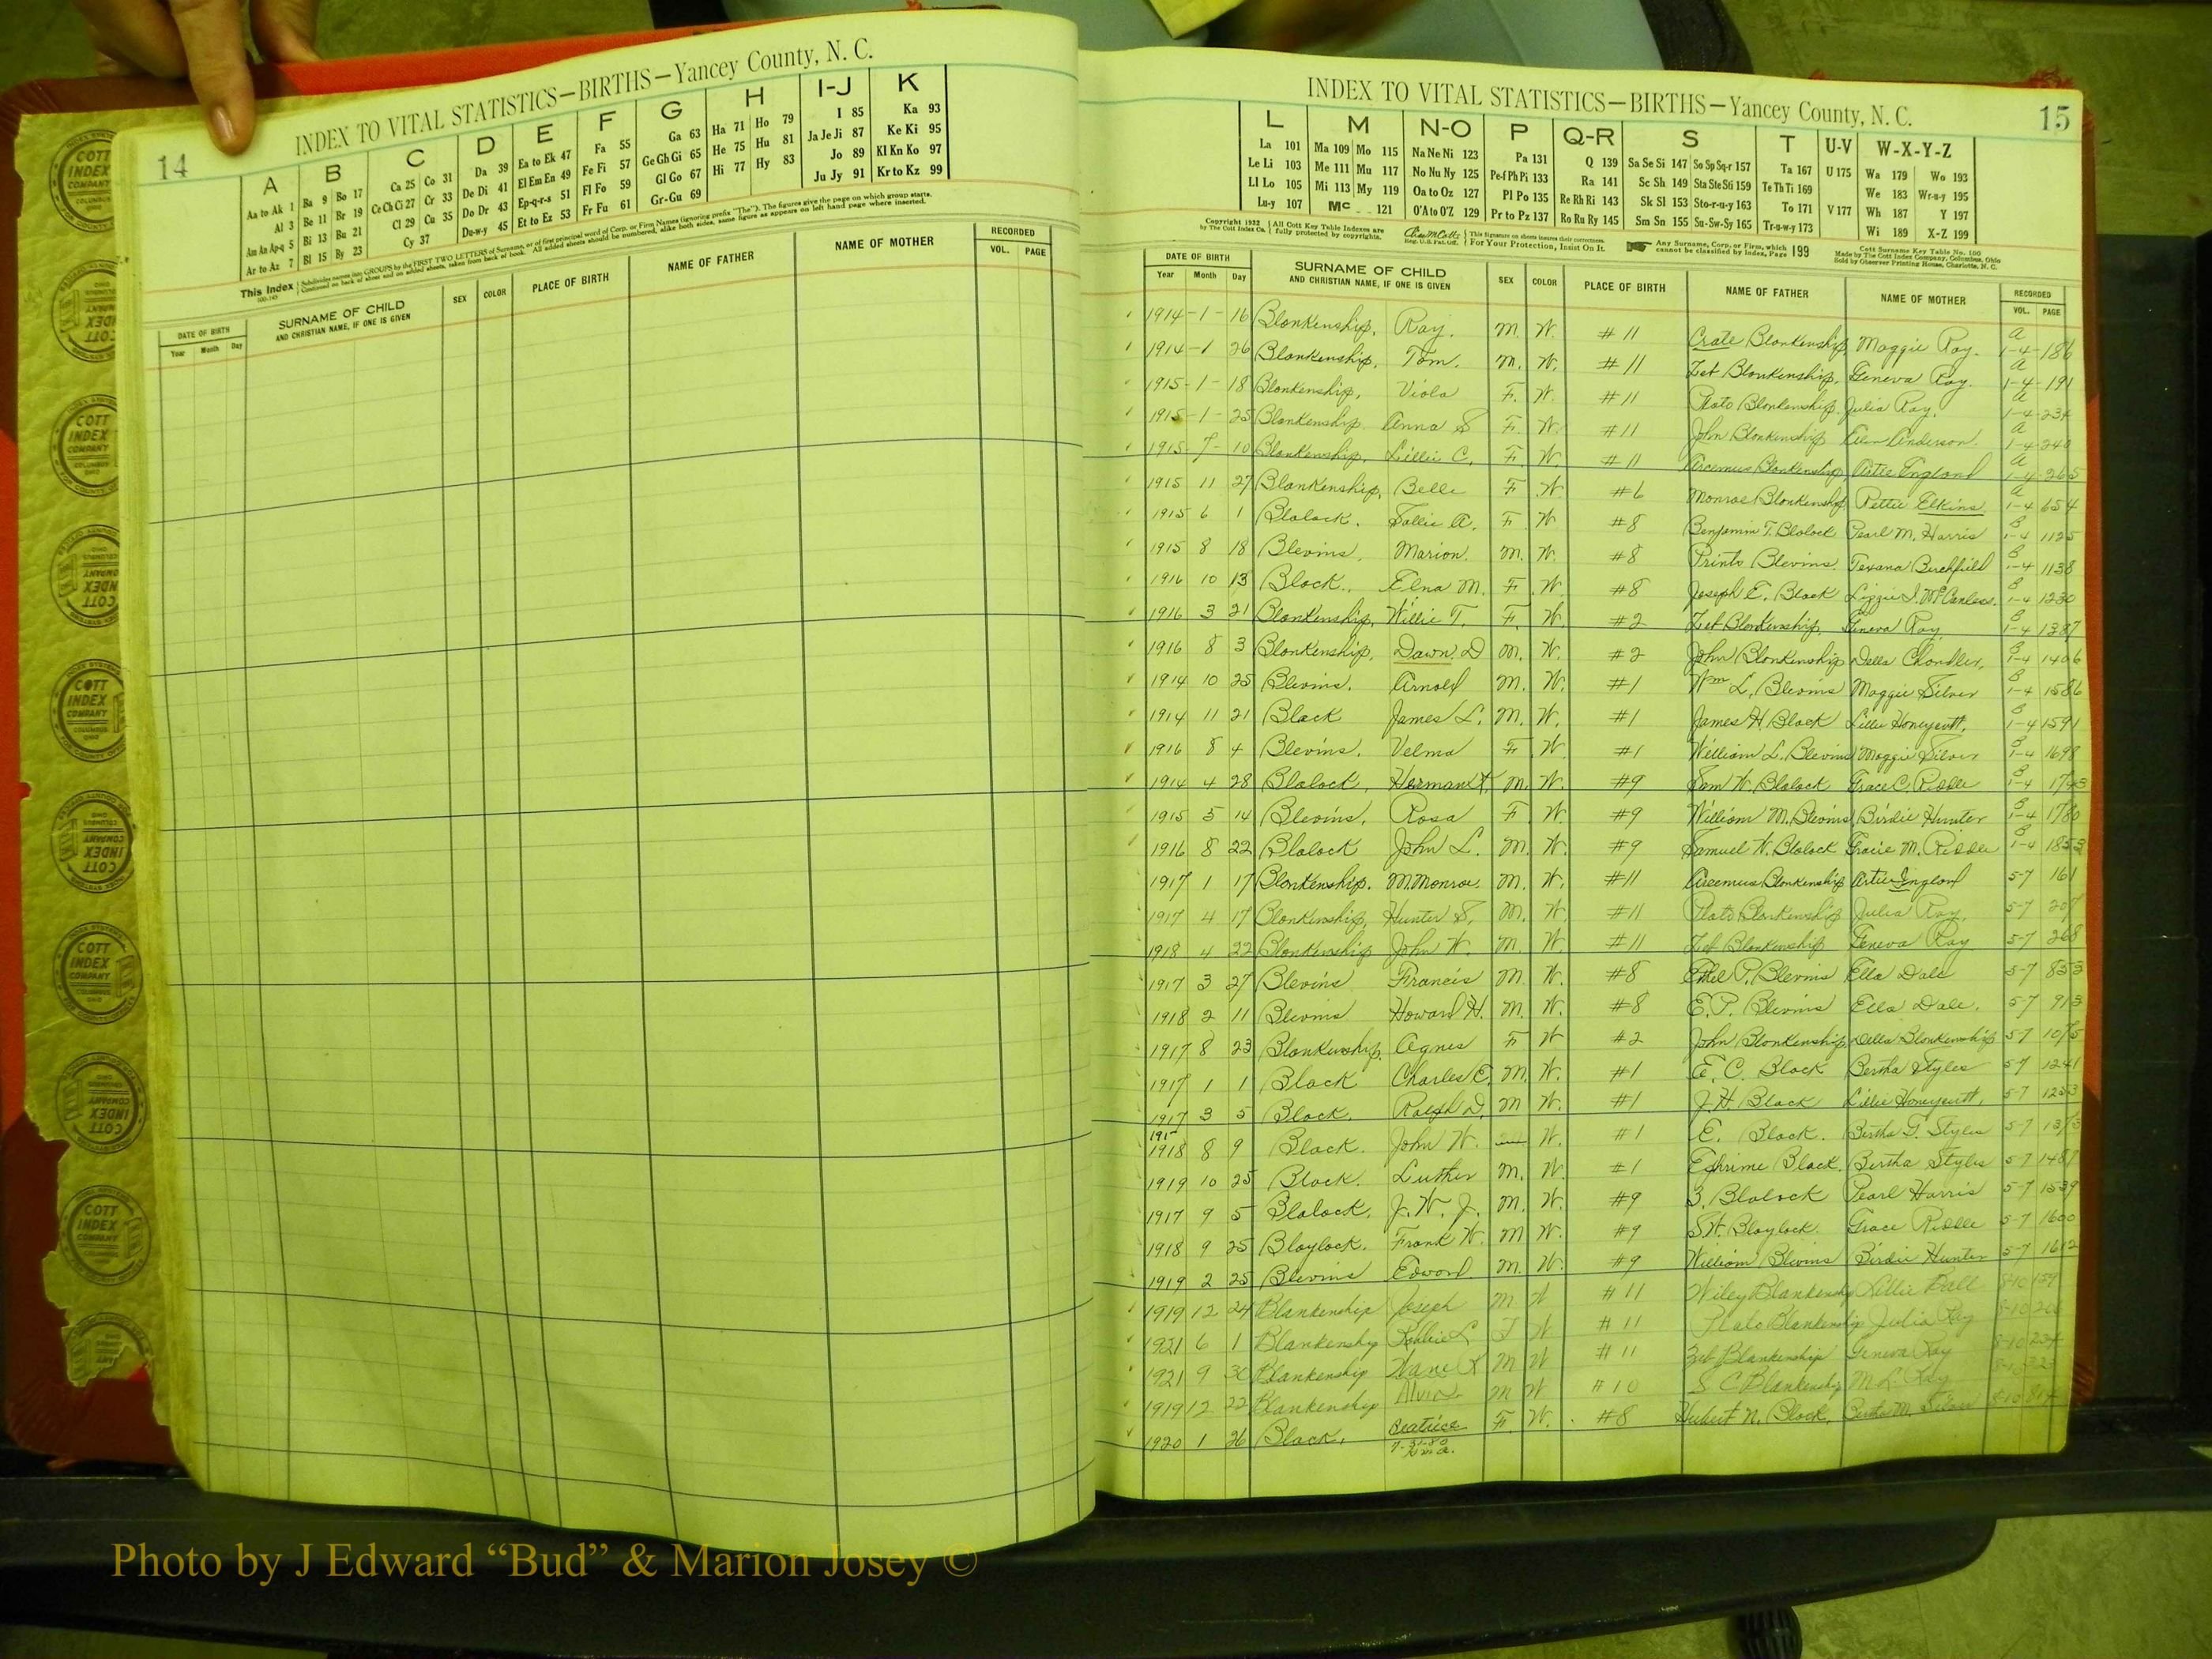 14
INDEX TO VITAL STATISTICS—BIRTHS—Yancey County, N. C.
A B C D E F G H I-J K
Aa to Ak 1 Ba 9 Bo 17 Ca 25 Co 31 Da 39 Ea to Ek 47 Fa 55 Ga 63 Ha 71 Ho 79 I 85 Ka 93
Al 3 Be 11 Br 19 Ce Ch Ci 27 Cr 33 De Di 41 El Em En 49 Fe Fi 57 Ge Gh Gi 65 He 75 Hu 81 Ja Je Ji 87 Ke Ki 95
Am An Ap-q 5 Bi 13 Bu 21 Cl 29 Cu 35 Do Dr 43 Ep-q-r-s 51 Fl Fo 59 Gl Go 67 Hi 77 Hy 83 Jo 89 Kl Kn Ko 97
Ar to Az 7 Bl 15 By 23 Cy 37 Du-w-y 45 Et to Ez 53 Fr Fu 61 Gr-Gu 69 Ju Jy 91 Kr to Kz 99
This Index
DATE OF BIRTH SURNAME OF CHILD SEX COLOR PLACE OF BIRTH NAME OF FATHER NAME OF MOTHER RECORDED
Year Month Day AND CHRISTIAN NAME, IF ONE IS GIVEN VOL. PAGE
COTT INDEX COMPANY
INDEX TO VITAL STATISTICS—BIRTHS—Yancey County, N. C.
15
L M N-O P Q-R S T U-V W-X-Y-Z
La 101 Ma 109 Mo 115 Na Ne Ni 123 Pa 131 Q 139 Sa Se Si 147 So Sp Sq-r 157 Ta 167 U 175 Wa 179 Wo 193
Le Li 103 Me 111 Mu 117 No Nu Ny 125 Pe-f Ph Pi 133 Ra 141 Sc Sh 149 Sta Ste Sti 159 Te Th Ti 169 We 183 Wr-u-y 195
Ll Lo 105 Mi 113 My 119 Oa to Oz 127 Pl Po 135 Re Rh Ri 143 Sk Sl 153 Sto-r-u-y 163 To 171 V 177 Wh 187 Y 197
Lu-y 107 Mc 121 O'A to O'Z 129 Pr to Pz 137 Ro Ru Ry 145 Sm Sn 155 Su-Sw-Sy 165 Tr-u-w-y 173 Wi 189 X-Z 199
Copyright 1932 by The Cott Index Co. All Cott Key Table Indexes are fully protected by copyrights. This signature on sheets insures their correctness. For Your Protection, Insist On It. Any Surname, Corp. or Firm, which cannot be classified by Index, Page 199
Cott Surname Key Table No. 100
Made by The Cott Index Company, Columbus, Ohio
Sold by Observer Printing House, Charlotte, N. C.
DATE OF BIRTH SURNAME OF CHILD SEX COLOR PLACE OF BIRTH NAME OF FATHER NAME OF MOTHER RECORDED
Year Month Day AND CHRISTIAN NAME, IF ONE IS GIVEN VOL. PAGE
1914-1-16 Blankenship, Ray. M. W. #11 Crate Blankenship, Maggie Ray. A 1-4-186
1914-1 26 Blankenship, Tom. M. W. #11 Zeb Blankenship, Geneva Ray. A 1-4-191
1915-1-18 Blankenship, Viola F. W. #11 Plato Blankenship, Julia Ray. A 1-4-234
1915-1-25 Blankenship Anna S F. W. #11 John Blankenship Anderson. A 1-4-240
1915-7-10 Blankenship, Lillie C. F. W. #11 Arcemus Blankenship, Artie England A 1-4-265
1915 11 27 Blankenship, Belle F. W. #6 Monroe Blankenship Elkins. A 1-4 654
1915 6 1 Blalock. Sallie A. F. W #8 Benjamin T. Blalock Pearl M. Harris B 1-4 1125
1915 8 18 Blevins. Marion. M. W. #8 Blevins. Texana Burchfield B 1-4 1138
1916 10 13 Black. Elna M. F. W. #8 Joseph E. Black Lizzie I. McCanless. B 1-4 1230
1916 3 21 Blankenship, Willie T. F. W. #2 Zeb Blankenship, Geneva Ray. B 1-4 1387
1916 8 3 Blankenship, Dawn D M. W. #2 John Blankenship Della Chandler. B 1-4 1406
1914 10 25 Blevins. Arnold M. W. #1 Wm L. Blevins Maggie Silver B 1-4 1586
1914 11 21 Black James L. M. W. #1 James H. Black Lillie Honeycutt. B 1-4 1591
1916 8 4 Blevins. Velma F. W. #1 William L. Blevins Maggie Silver B 1-4 1698
1914 4 28 Blalock, M. W. #9 Sam W. Blalock Grace C. Riddle B 1-4
1915 5 14 Blevins. Rosa F. W. #9 William M. Blevins, Birdie Hunter B 1-4 1780
1916 8 22 Blalock John L. M. W. #9 Samuel W. Blalock Gracie M. Riddle B 1-4
1917 1 17 Blankenship. M. Monroe. M. W. #11 Arcemus Blankenship Artie England 5-7 161
1917 4 17 Blankenship, Hunter S. M. W. #11 Plato Blankenship Julia Ray. 5-7 207
1918 4 22 Blankenship John W. M. W. #11 Zeb Blankenship Geneva Ray 5-7 268
1917 3 27 Blevins Francis M. W. #8 P. Blevins Ella Dale 5-7 853
1918 2 11 Blevins Howard H. M. W. #8 E.P. Blevins Ella Dale. 5-7 913
1917 8 23 Blankenship. Agnes F W #2 John Blankenship, Della Blankenship 5-7
1917 1 1 Black Charles E. M. W. #1 E. C. Black Bertha Styles 5-7 1241
1917 3 5 Black. Ralph D. M W. #1 J. H. Black Lillie Honeycutt. 5-7 1253
1918 8 9 Black. John W. W. #1 E. Black. Bertha Styles 5-7
1919 10 25 Black. Luther M. W. #1 Ephrime Black. Bertha Styles 5-7 1487
1917 9 5 Blalock. J. W. J. M. W. #9 Blalock Pearl Harris 5-7 1539
1918 9 25 Blaylock. Frank W. M W. #9 S.W. Blaylock. Grace Riddle 5-7 1600
1919 2 25 Blevins Edword. M. W. #9 William Blevins Birdie Hunter 5-7 1612
1919 12 24 Blankenship Joseph M W #11 Wiley Blankenship Ball 8-10
1921 6 1 Blankenship L F W #11 Plato Blankenship Julia Ray 8-10
1921 9 30 Blankenship M W #11 Zeb Blankenship Geneva Ray 8-10
1919 12 22 Blankenship M W #10 S. C. Blankenship M. L. Ray
1920 1 26 Black, Beatrice F. W. #8 Hubert N. Black, Bertha M. Silver 8-10
Photo by J Edward “Bud” & Marion Josey ©